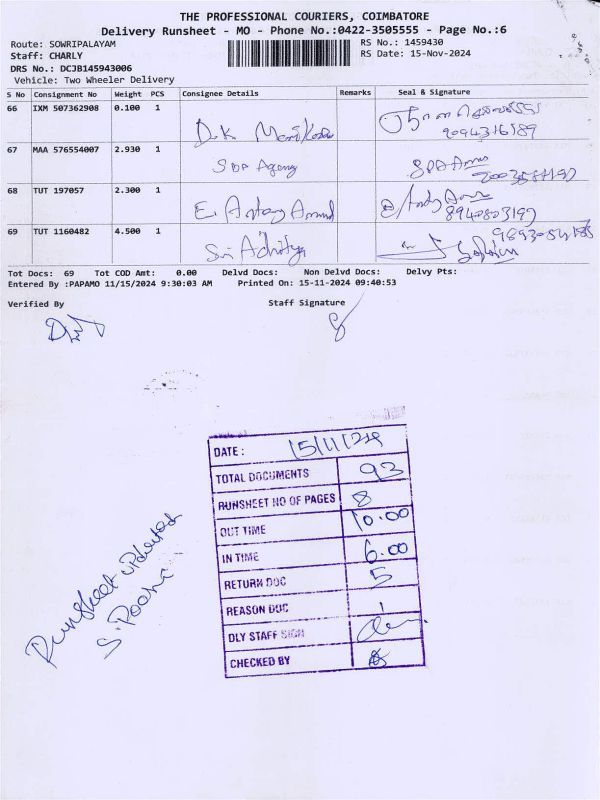 THE PROFESSIONAL COURIERS, COIMBATORE
Delivery Runsheet - MO - Phone No.:0422-3505555 - Page No.:6
Route: SOWRIPALAYAM
RS No.: 1459430
Staff: CHARLY
RS Date: 15-Nov-2024
DRS No.: DCJB145943006
Vehicle: Two Wheeler Delivery
S No Consignment No Weight PCS Consignee Details Remarks Seal & Signature
66 IXM 507362908 0.100 1 D.K
67 MAA 576554007 2.930 1 SDA Agency SDA
68 TUT 197057 2.300 1 E. Antony
8940803197
69 TUT 1160482 4.500 1 Sri Adhitya
Tot Docs: 69 Tot COD Amt: 0.00 Delvd Docs: Non Delvd Docs: Delvy Pts:
Entered By :PAPAMO 11/15/2024 9:30:03 AM Printed On: 15-11-2024 09:40:53
Verified By Staff Signature
DATE : 15/11/24
TOTAL DOCUMENTS 93
RUNSHEET NO OF PAGES 8
OUT TIME 10.00
IN TIME 6.00
RETURN DOC 5
REASON DOC
DLY STAFF SIGN
CHECKED BY
Runsheet